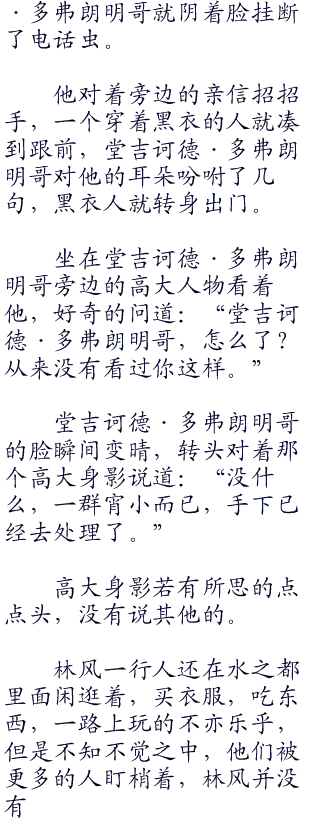 ·多弗朗明哥就阴着脸挂断
了电话虫。
他对着旁边的亲信招招
手，一个穿着黑衣的人就凑
到跟前，堂吉诃德·多弗朗
明哥对他的耳朵吩咐了几
句，黑衣人就转身出门。
坐在堂吉诃德·多弗朗
明哥旁边的高大人物看着
他，好奇的问道：“堂吉诃
德·多弗朗明哥，怎么了？
从来没有看过你这样。”
堂吉诃德·多弗朗明哥
的脸瞬间变晴，转头对着那
个高大身影说道：“没什
么，一群宵小而已，手下已
经去处理了。”
高大身影若有所思的点
点头，没有说其他的。
林风一行人还在水之都
里面闲逛着，买衣服，吃东
西，一路上玩的不亦乐乎，
但是不知不觉之中，他们被
更多的人盯梢着，林风并没
有